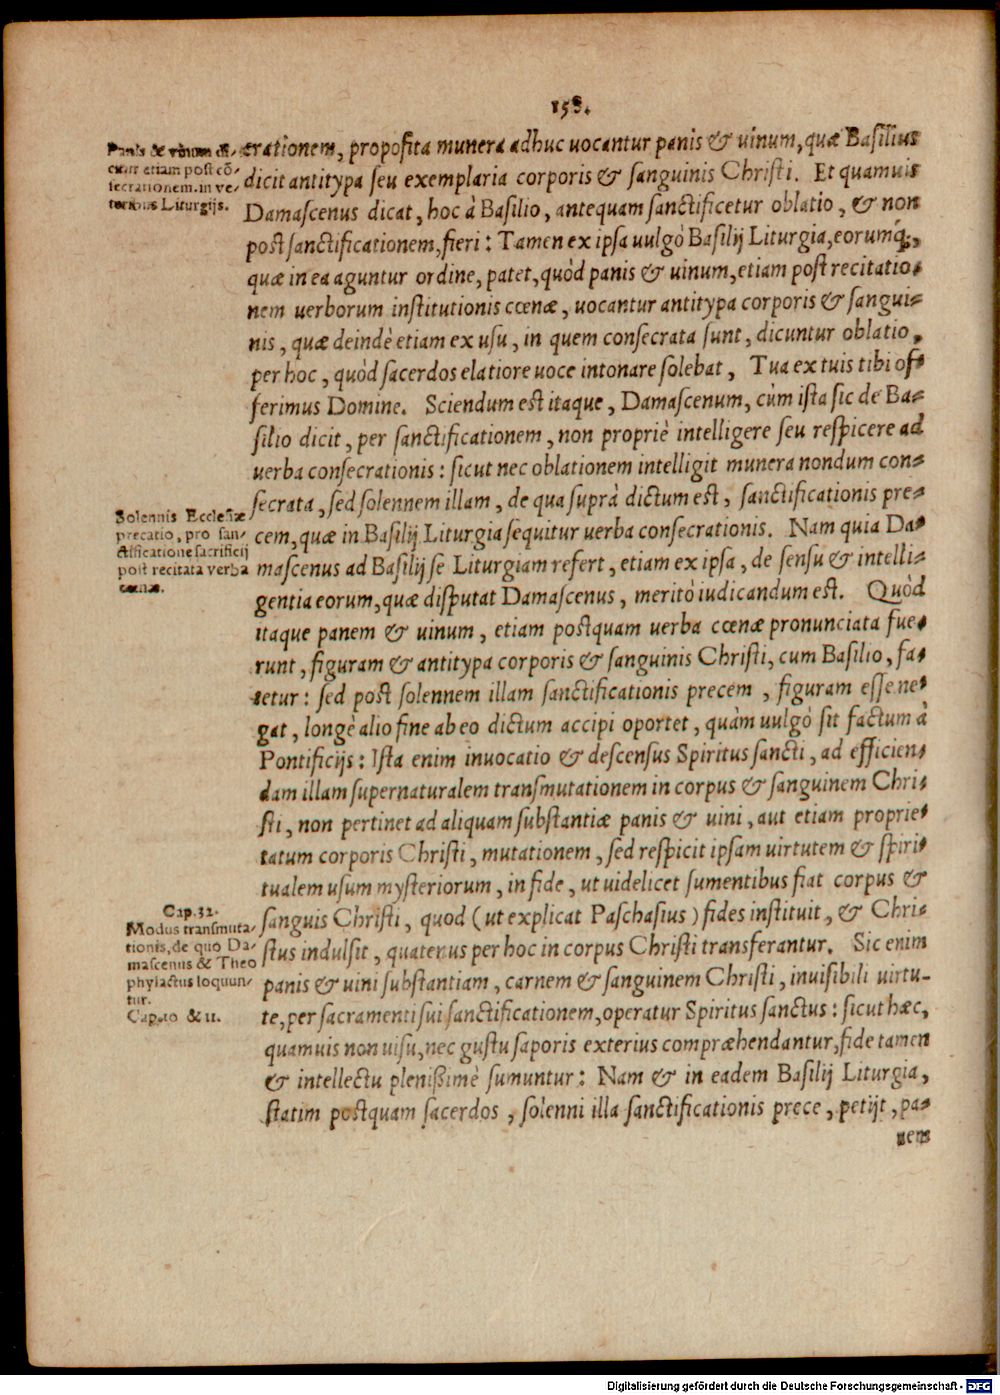 158.
Panis & vinum di-
cuntur etiam post cõ-
secrationem, in ve-
teribus Liturgijs.
crationem, proposita munera adhuc uocantur panis & uinum, quæ Basilius
dicit antitypa seu exemplaria corporis & sanguinis Christi. Et quamuis
Damascenus dicat, hoc à Basilio, antequam sanctificetur oblatio, & non
post sanctificationem, fieri: Tamen ex ipsa uulgò Basilij Liturgia, eorumq́;,
quæ in ea aguntur ordine, patet, quòd panis & uinum, etiam post recitatio-
nem uerborum institutionis cœnæ, uocantur antitypa corporis & sangui-
nis, quæ deindè etiam ex usu, in quem consecrata sunt, dicuntur oblatio,
per hoc, quòd sacerdos elatiore uoce intonare solebat, Tua ex tuis tibi of-
ferimus Domine. Sciendum est itaque, Damascenum, cùm ista sic de Ba-
silio dicit, per sanctificationem, non propriè intelligere seu respicere ad
uerba consecrationis: sicut nec oblationem intelligit munera nondum con-
secrata, sed solennem illam, de qua suprà dictum est, sanctificationis pre-
Solennis Ecclesiæ
precatio, pro san-
ctificatione sacrificij
post recitata verba
cœnæ.
cem, quæ in Basilij Liturgia sequitur uerba consecrationis. Nam quia Da-
mascenus ad Basilij se Liturgiam refert, etiam ex ipsa, de sensu & intelli-
gentia eorum, quæ disputat Damascenus, meritò iudicandum est. Quòd
itaque panem & uinum, etiam postquam uerba cœnæ pronunciata fue-
runt, figuram & antitypa corporis & sanguinis Christi, cum Basilio, fa-
tetur: sed post solennem illam sanctificationis precem, figuram esse ne-
gat, longè alio fine ab eo dictum accipi oportet, quàm uulgò sit factum à
Pontificijs: Ista enim inuocatio & descensus Spiritus sancti, ad efficien-
dam illam supernaturalem transmutationem in corpus & sanguinem Chri-
sti, non pertinet ad aliquam substantiæ panis & uini, aut etiam proprie-
tatum corporis Christi, mutationem, sed respicit ipsam uirtutem & spiri-
tualem usum mysteriorum, in fide, ut uidelicet sumentibus fiat corpus &
Cap. 32.
Modus transmuta-
tionis, de quo Da-
mascenus & Theo
phylactus loquun-
tur.
Cap. 10 & 11.
sanguis Christi, quod (ut explicat Paschasius) fides instituit, & Chri-
stus indulsit, quatenus per hoc in corpus Christi transferantur. Sic enim
panis & uini substantiam, carnem & sanguinem Christi, inuisibili uirtu-
te, per sacramenti sui sanctificationem, operatur Spiritus sanctus: sicut hæc,
quamuis non uisu, nec gustu saporis exterius compræhendantur, fide tamen
& intellectu plenissimè sumuntur: Nam & in eadem Basilij Liturgia,
statim postquam sacerdos, solenni illa sanctificationis prece, petijt, pa-
nem
Digitalisierung gefördert durch die Deutsche Forschungsgemeinschaft - DFG